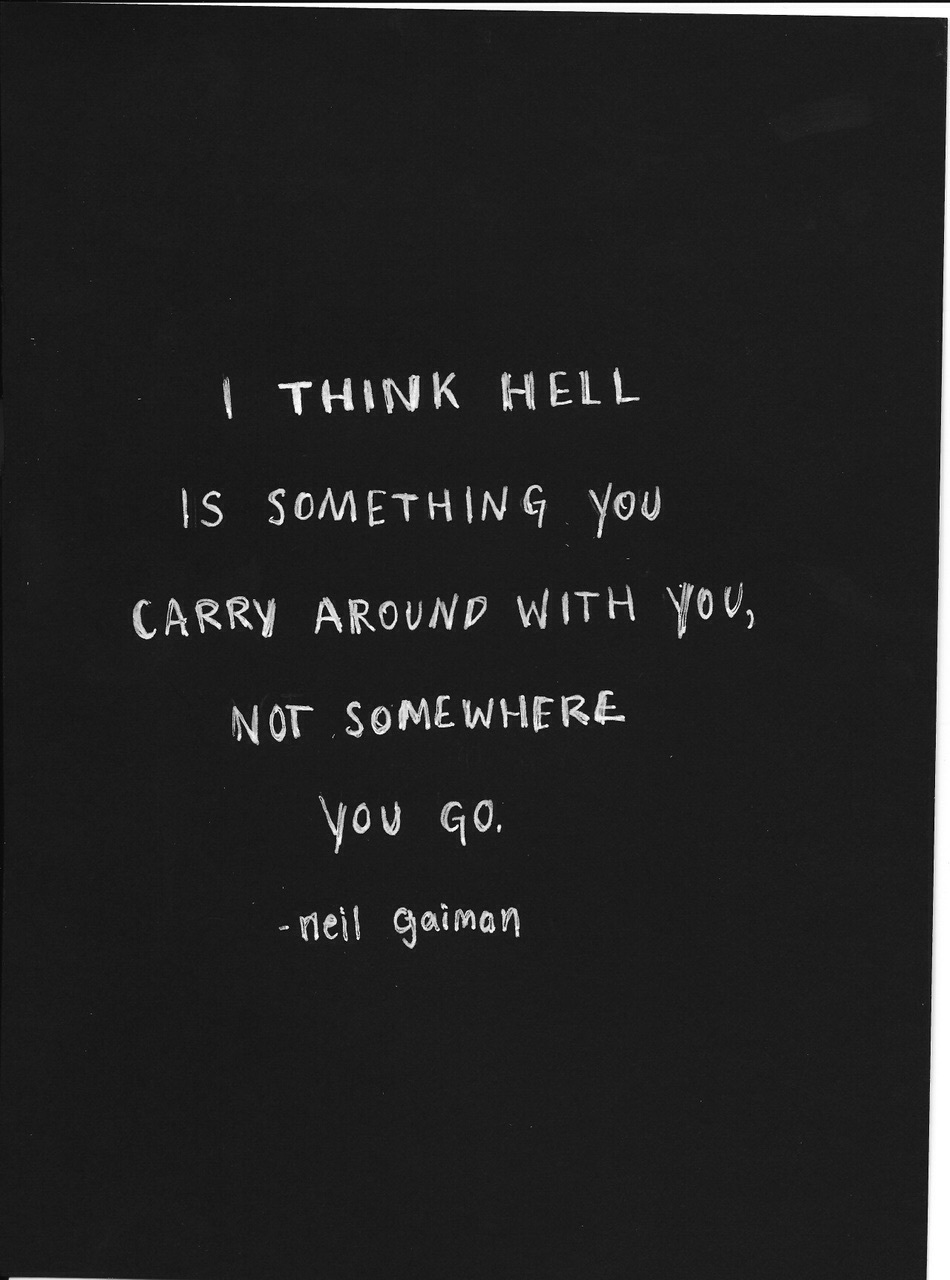 I THINK HELL
IS SOMETHING YOU
CARRY AROUND WITH YOU,
NOT SOMEWHERE
YOU GO.
-neil gaiman